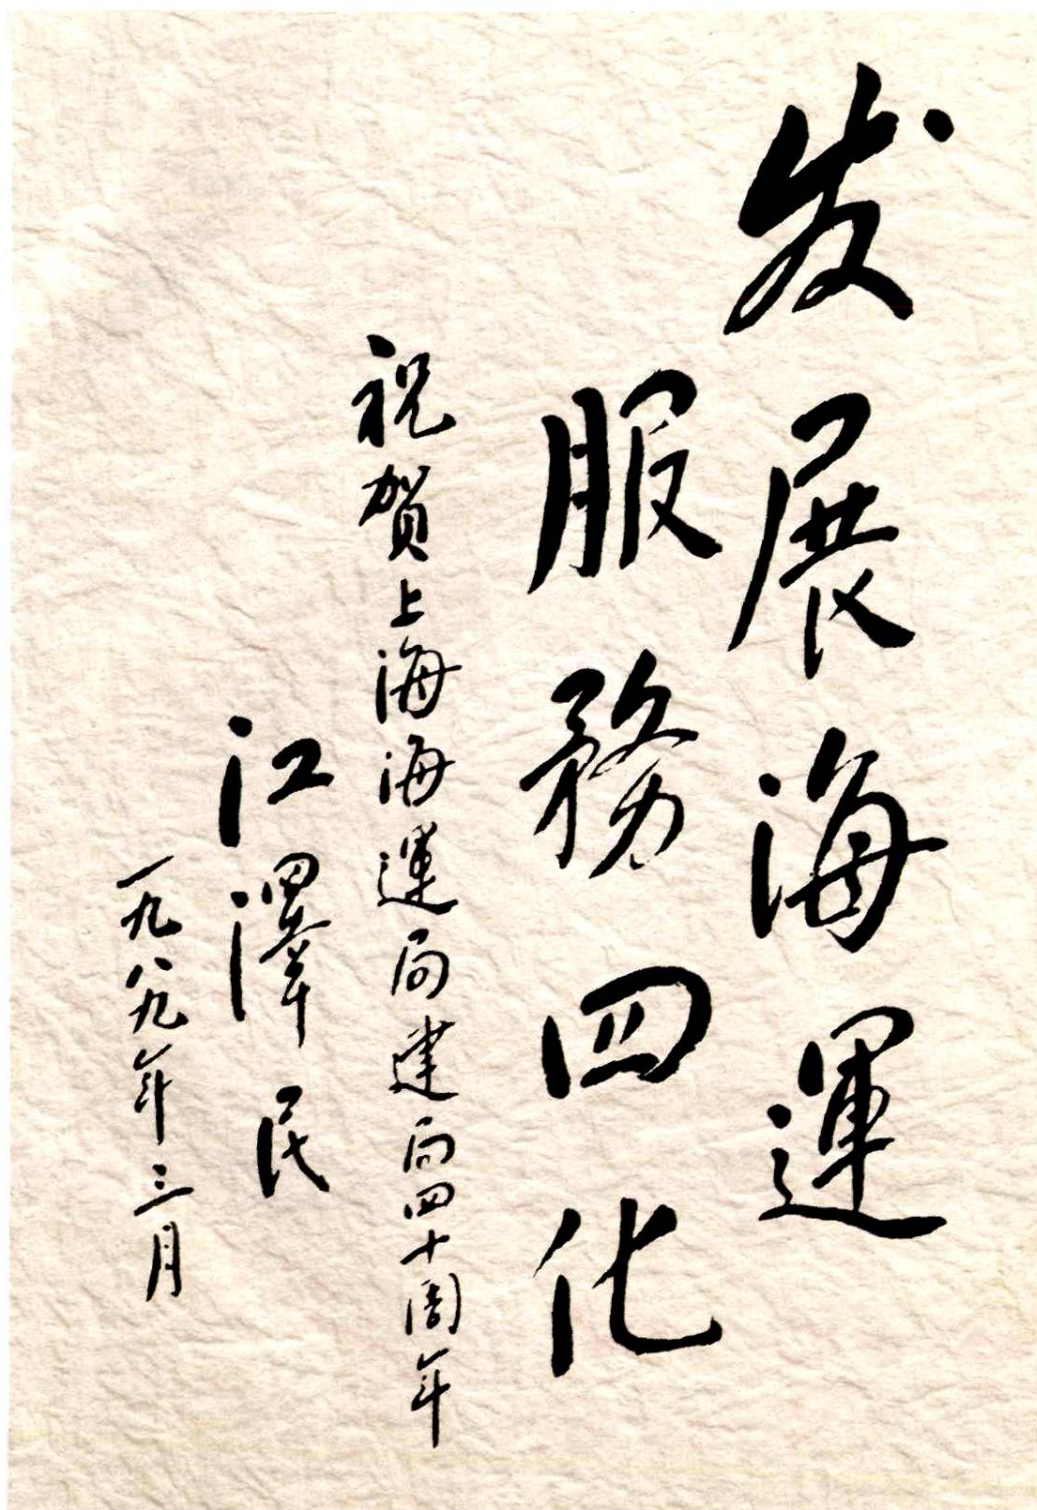 发展海運
服務四化
祝贺上海海運局建局四十周年
江澤民
一九八九年三月